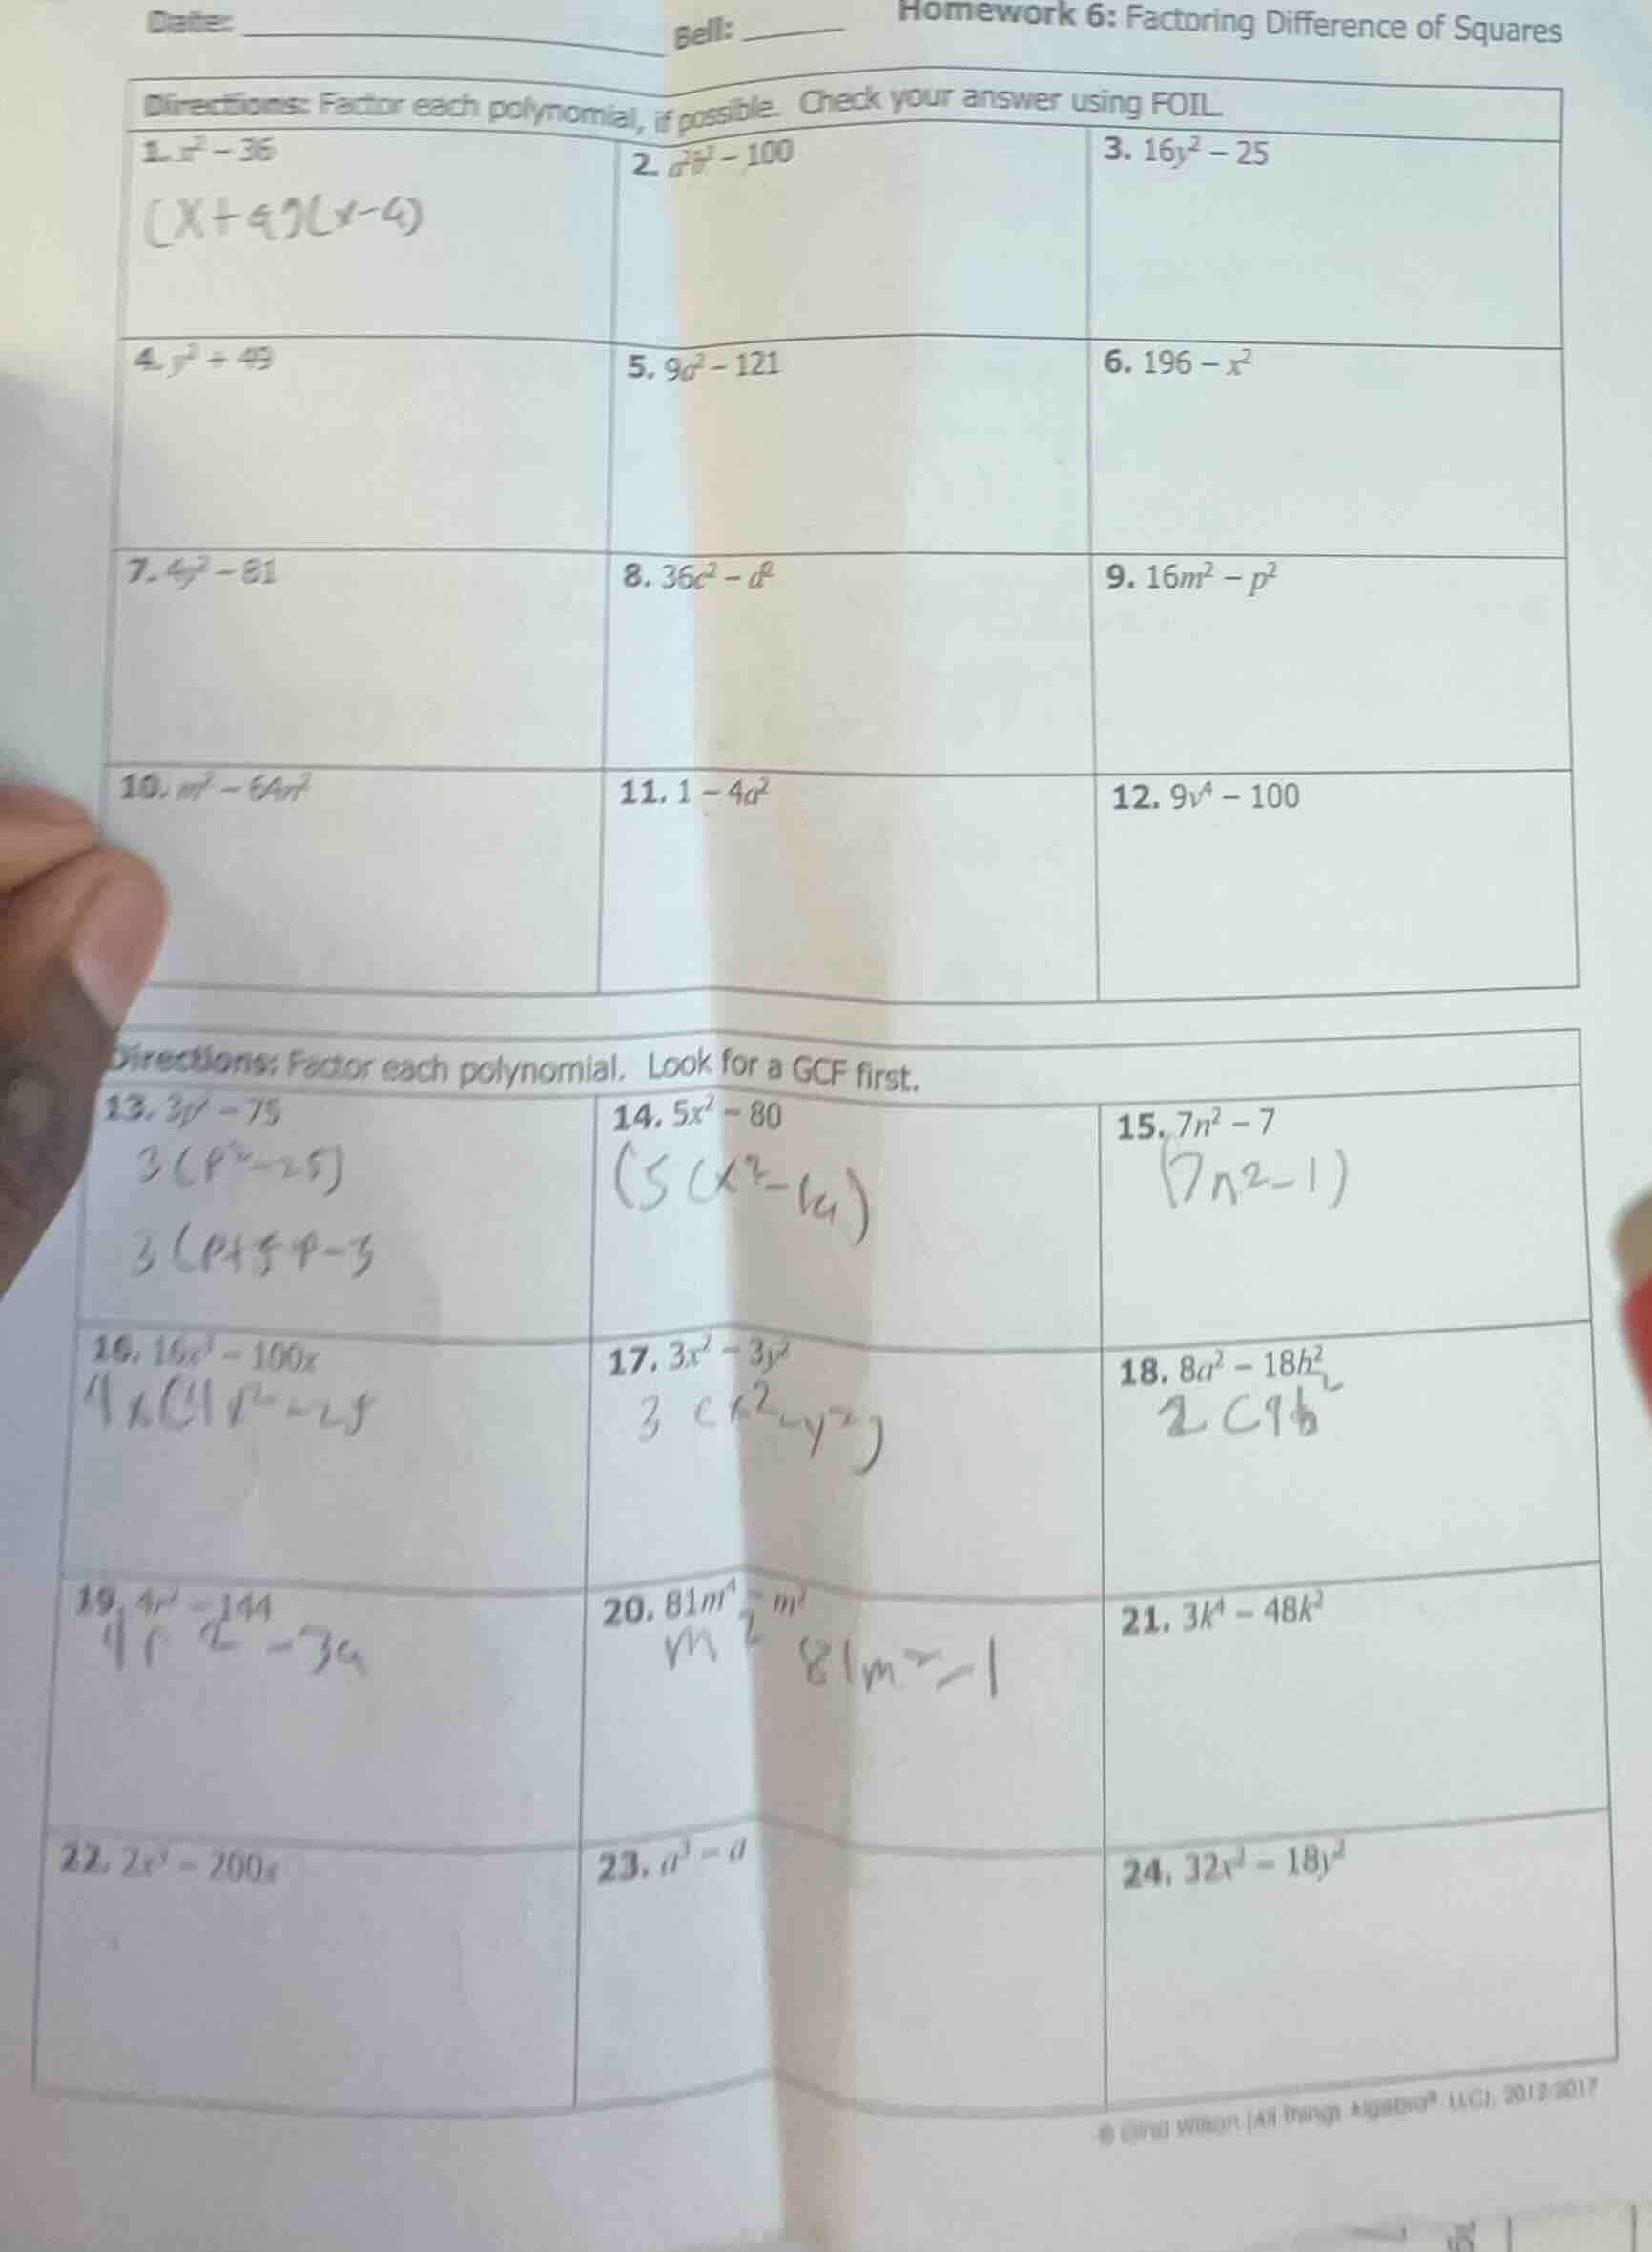 Date:
Bell:
Homework 6: Factoring Difference of Squares
Directions: Factor each polynomial, if possible. Check your answer using FOIL.
1. x² – 36
2. – 100
3. 16y² – 25
(x+6)(x-6)
4. y² + 49
5. 9a² – 121
6. 196 – x²
7. 4y² – 81
8. 36c² – d²
9. 16m² – p²
10. m² – 64n²
11. 1 – 4a²
12. 9v⁴ – 100
Directions: Factor each polynomial. Look for a GCF first.
13. 3p² – 75
14. 5x² – 80
15. 7n² – 7
3(p²-25)
(5(x²-
(7n²-1)
3(p+5 p-5
16. 16x³ – 100x
17. 3x² – 3y²
18. 8a² – 18b²
4x(4x²-25
3(x²-y²)
2(
19. 4r² – 144
20. 81m⁴ – m²
21. 3k⁴ – 48k²
4r²-
m² 81m²-1
22. 2x³ – 200x
23. a³ – a
24. 32x² – 18y²
© Gina Wilson (All Things Algebra®, LLC), 2012-2017